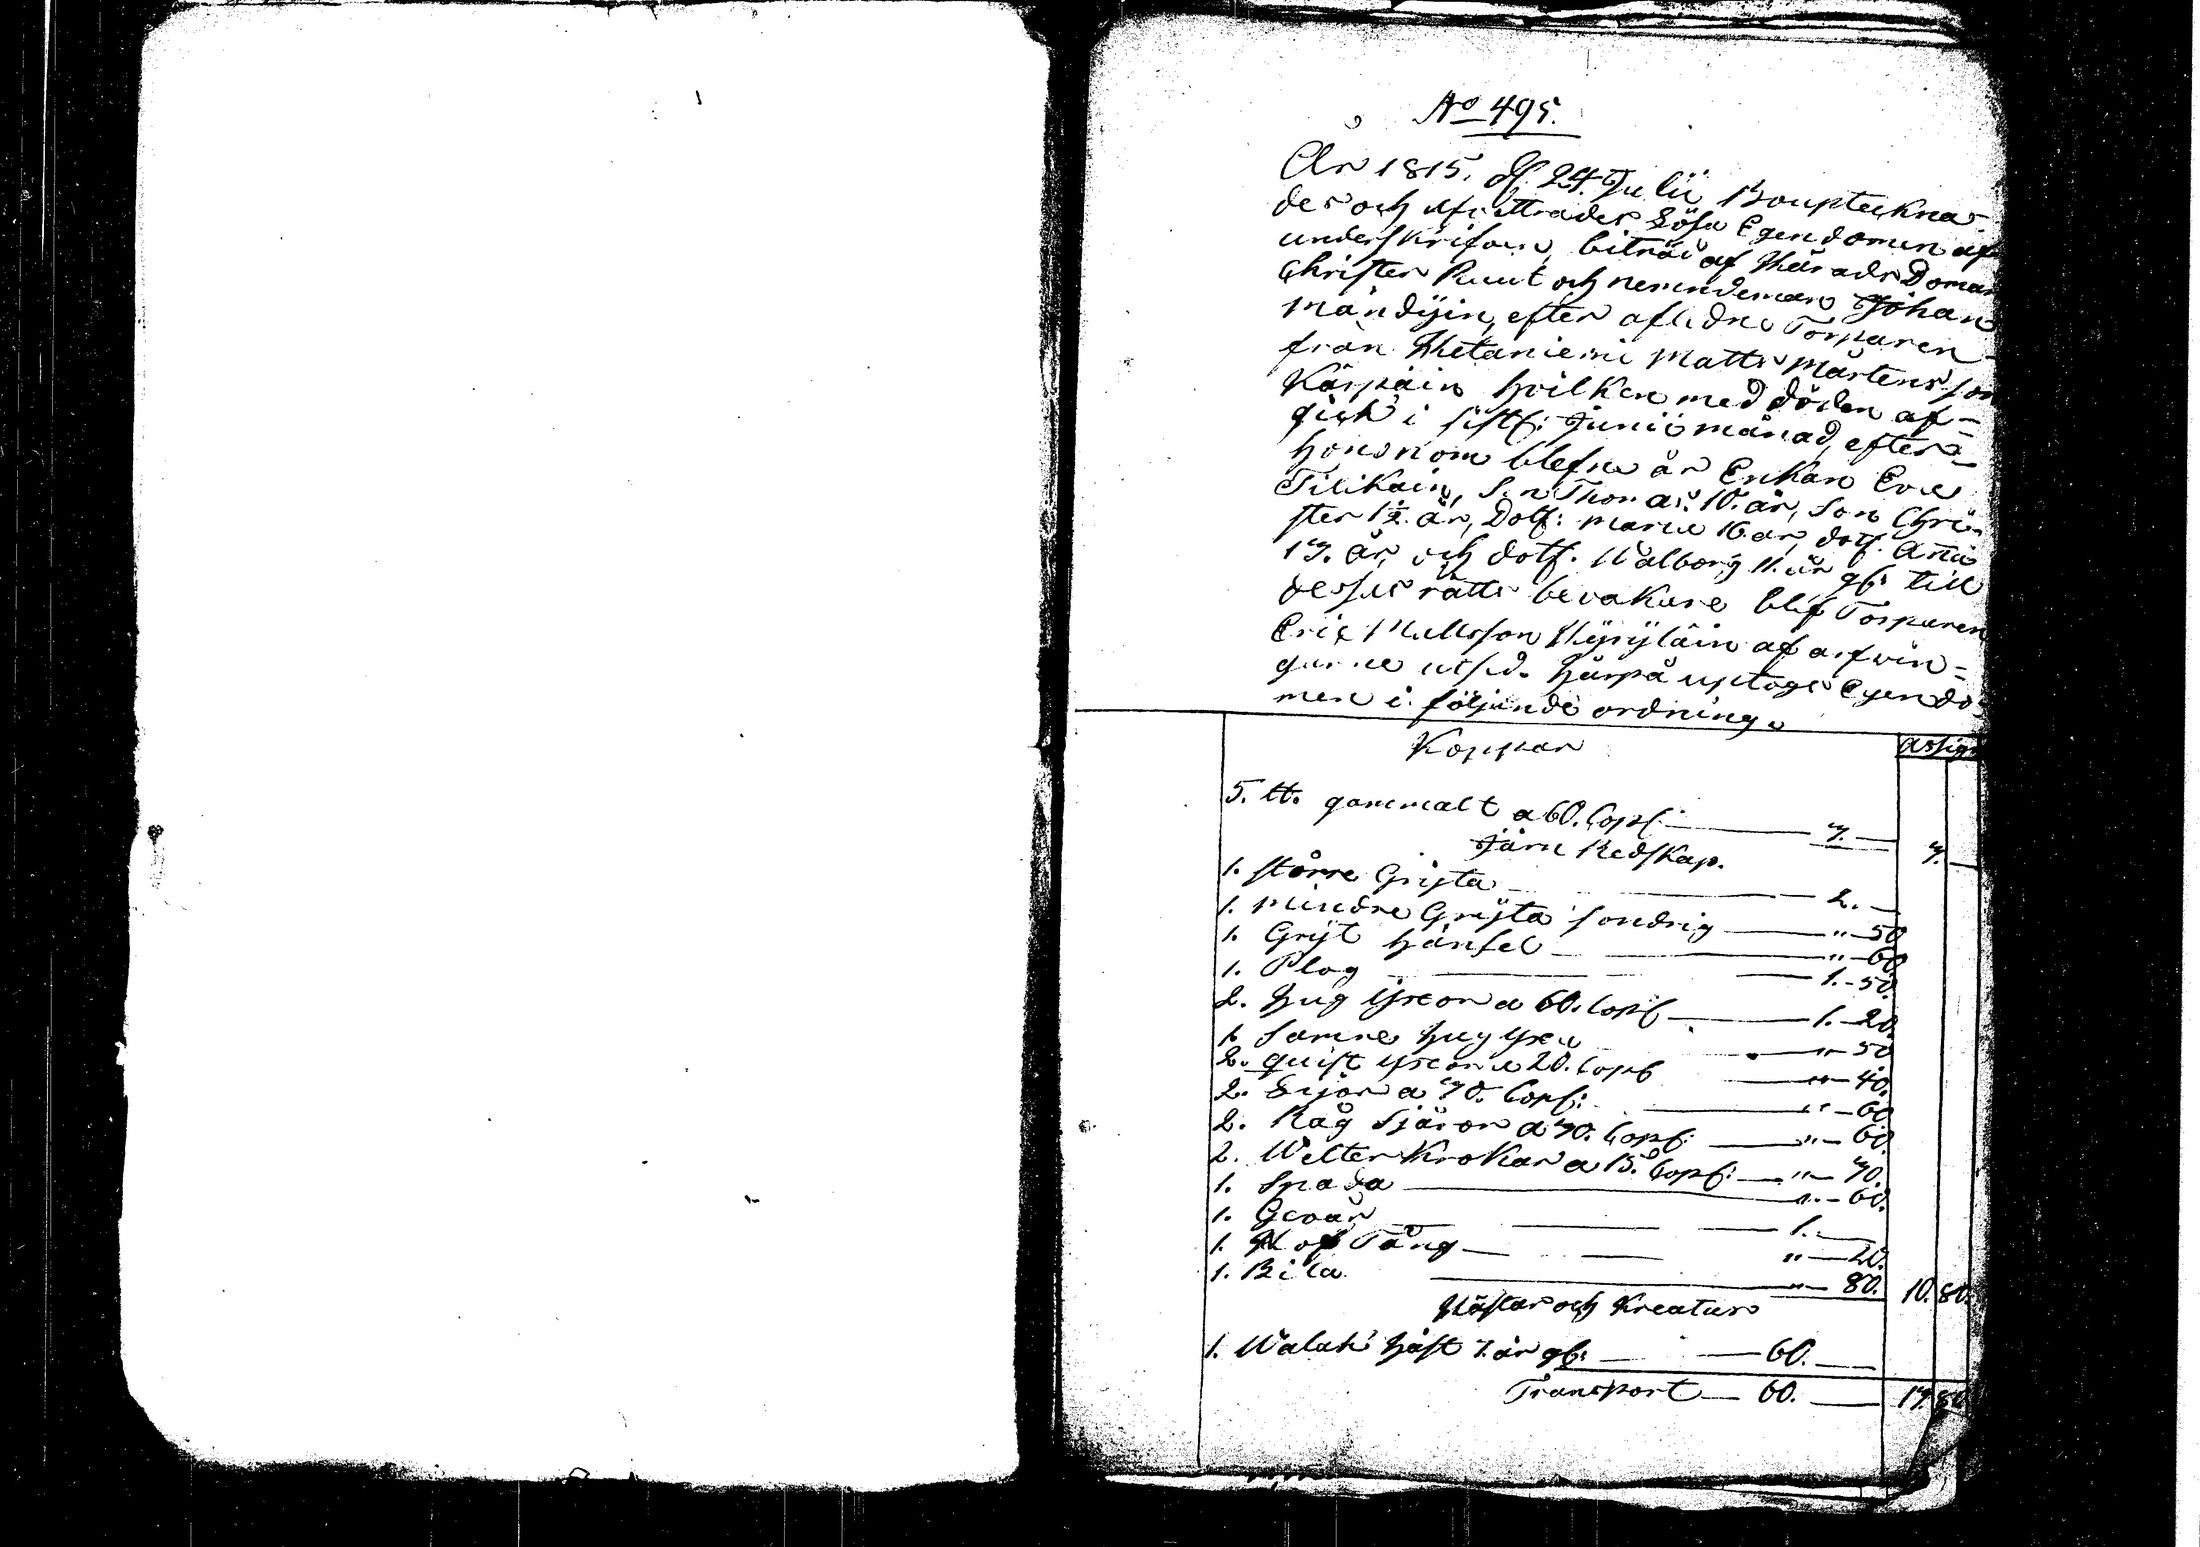 No 495.
År 1815. d. 24. Julii Bouptekna-
des och Löfa Egendomen af
underskrifven, biträd af Härads Doman
Christer Ruut och nemndeman Johan
Mandÿin, efter aflidne Torparen
från Hietaniemi Matts Mårtensson
Kärpäin hvilken med döden af-
gick i sistl: Junii månad, efter
honom blefne är Enkan Eva
Tilikain, Son Thomas 10. år, Son Chri-
ster 1½ år, Dotf: Maria 16. år, dotf. Anna
13. år och dotf. Walborg 11. år gl: till
desses rätts bevakare blef Torparen
Eric Mattsson Hÿrÿläin af arfvin-
garne utsed. Härpå uptogs Egendo-
men i följande ordning.
Koppar assign
5. lt. gammalt a 60. Cops: 3. — 3. —
Järn Redskap.
1. större Grÿta — 2. —
1. mindre Grÿta sondrig — " — 50
1. Grÿt hänfel — " — 60
1. Plog — 1. — 50.
2. hug ÿxor a 60. Cops — 1. — 20.
1. Samre hug ÿxa — " — 50
2. quist ÿxor a 20. Cops — " — 40.
2. Lijor a 30. Cops: — " — 60
2. Råg Skjäror a 30. Cops: — " — 60.
2. Welter Krokar a 15. Cops: — " — 30.
1. Spada — " — 60.
1. Gevär — 1. —
1. Tång — " — 20.
1. Bila — " — 80. 10. 80.
Hästar och Kreatur
1. Walak häst 7. år gl: — 60. —
Transport — 60. — 13. 80